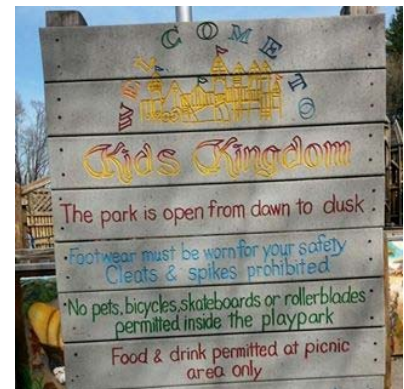 WELCOME TO
Kids Kingdom
The park is open from dawn to dusk
Footwear must be worn for your safety
Cleats & spikes prohibited
No pets, bicycles, skateboards or rollerblades
permitted inside the playpark
Food & drink permitted at picnic
area only